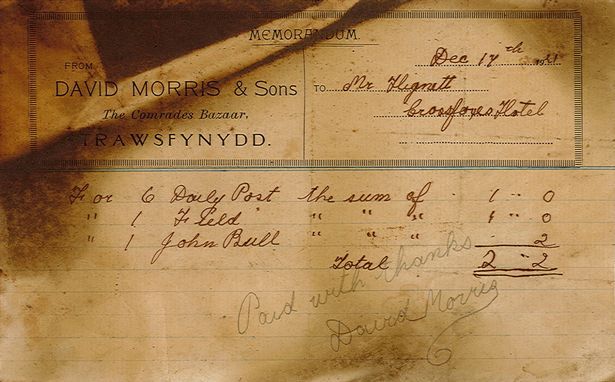 MEMORANDUM.
FROM
DAVID MORRIS & Sons
The Comrades Bazaar,
TRAWSFYNYDD.
Dec 17th 1921
TO Mr Hignett
Crossfoxes Hotel
For 6 Daily Post the sum of 1 " 0
" 1 Field " " " 1 " 0
" 1 John Bull " " " " 2
Total 2 " 2
Paid with thanks
David Morris